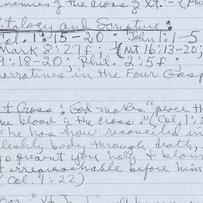 enemies of the cross of Xt. - (Phi
stology and Scripture:
Col. 1:15-20; John 1:1-5
Mark 8:27f; (Mt 16:13-20;
9:18-20; Phil. 2:5f;
narratives in the Four Gosp
+ Cross: God makes "peace th
he blood of the cross." (Col. 1:2
"he has now reconciled in
fleshly body through death,
to present you holy + blam
irreproachable before him
Col. 1:22)